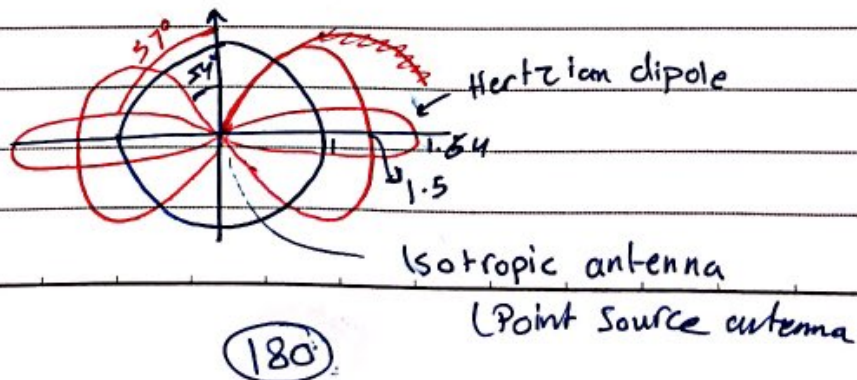 57°
54°
Hertzian dipole
1
1.64
1.5
Isotropic antenna
(Point Source antenna
180